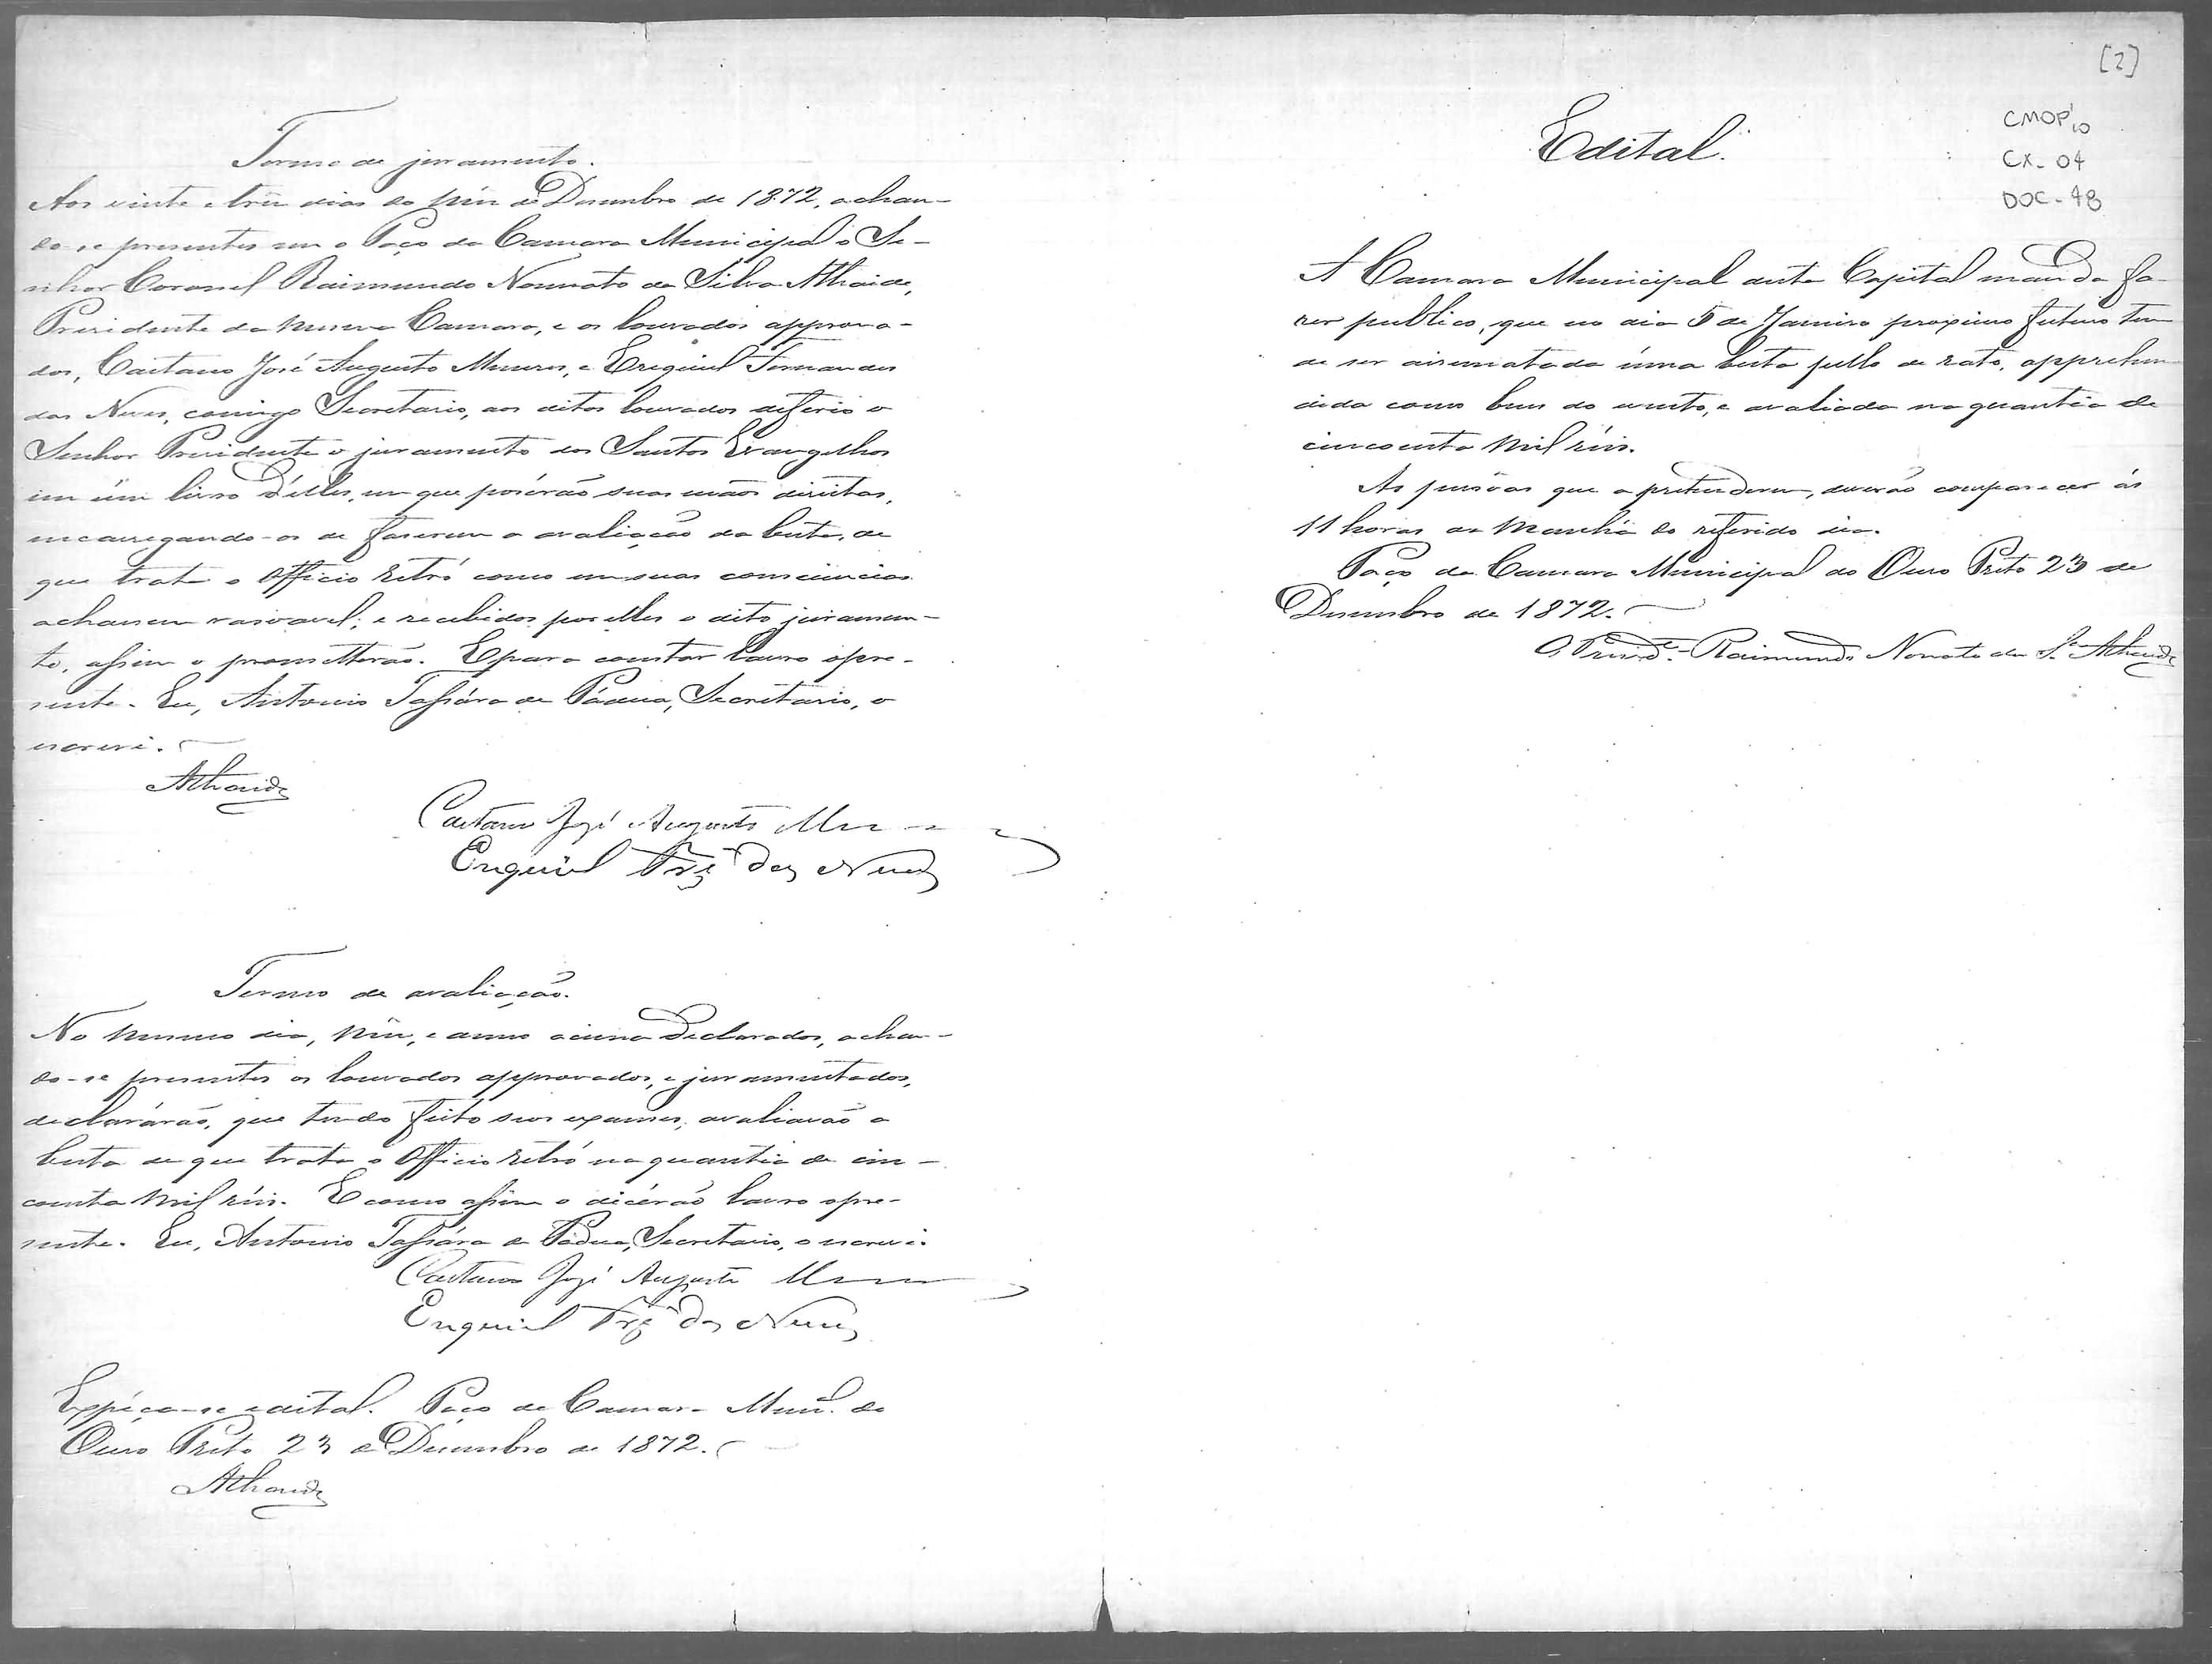 Termo de juramento.
Aos vinte e tres dias do mês de Desembro de 1872, achan-
do-se presentes em o Paço da Camara Municipal o Se-
nhor Coronel Raimundo Nonnato da Silva Athaide,
Presidente da mesma Camara, e os louvados approva-
dos, Caetano José Augusto, e Ezequiel Fernandes
das Neves, comigo Secretario, aos ditos louvados deferio o
Senhor Presidente o juramento dos Santos Evangelhos
em úm livro d'elles, em que poserão suas mãos direitas,
encarregando-os de faserem a avaliação da besta, de
que trata o Officio retró como em suas consciencias
acharem rasoavel; e recebidos por elles o dito juramen-
to, assim o prometterão. E para constar lavro o pre-
sente. Eu, Antonio Tassára de Pádua, Secretario, o
escrevi.
Athaide
Caetano José Augusto
Ezequiel Frz das Neves
Termo de avaliação.
No mesmo dia, mês, e anno acima declarados, achan-
do-se presentes os louvados approvados, e juramentados,
declarárão, que tendo feito seos exames, avaliavão a
besta de que trata o Officio retró na quantia de cin-
coenta mil réis. E como assim o dicérão lavro o pre-
sente. Eu, Antonio Tassára de Padua, Secretario, o escrevi.
Caetano José Augusto
Ezequiel Frz das Neves
Expeça-se edital. Paço da Camara Munl. do
Ouro Preto 23 de Dezembro de 1872.
Athaide
[2]
CMOP 10
CX - 04
DOC - 48
Edital.
A Camara Municipal desta Capital manda fa-
zer publico, que no dia 5 de Janeiro proximo futuro tem
de ser arrematada úma besta pello de rato, apprehen
dida como bem do evento, e avaliada na quantia de
cincoenta mil réis.
As pessôas que a pretenderem, deverão comparecer ás
11 horas da manhã do referido dia.
Paço da Camara Municipal do Ouro Preto 23 de
Desembro de 1872.
O Presid.e Raimundo Nonato da S.a Athaide